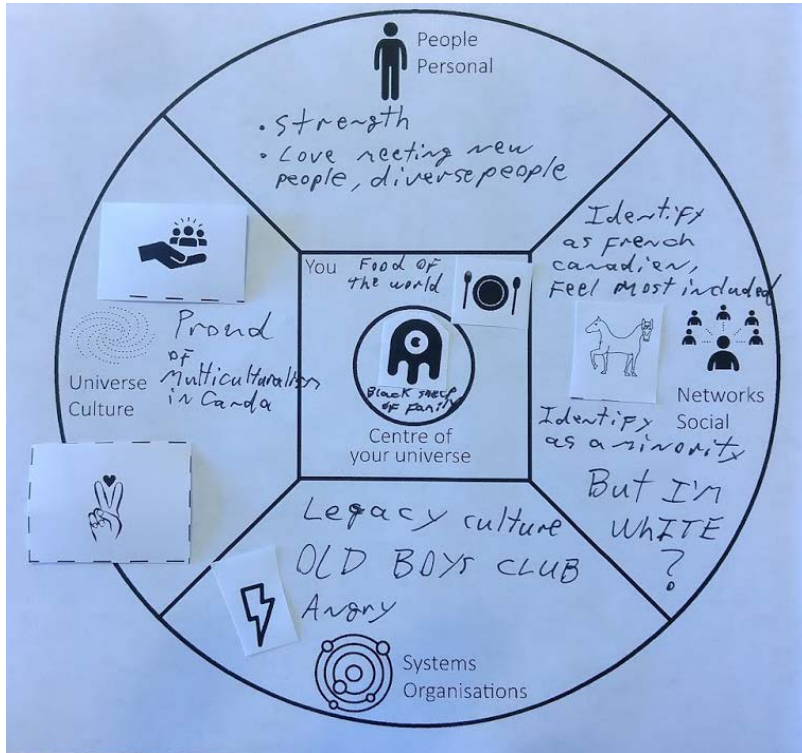 People
Personal
• Strength
• Love meeting new
people, diverse people
Identify
as french
canadien,
Feel Most included
Networks
Social
Identify
as a minority
But I'M
WHITE
?
You
Food of
the world
Black sheep
of Family
Centre of
your universe
Proud
of
Multiculturalism
in Canda
Universe
Culture
Legacy culture
OLD BOYS CLUB
Angry
Systems
Organisations